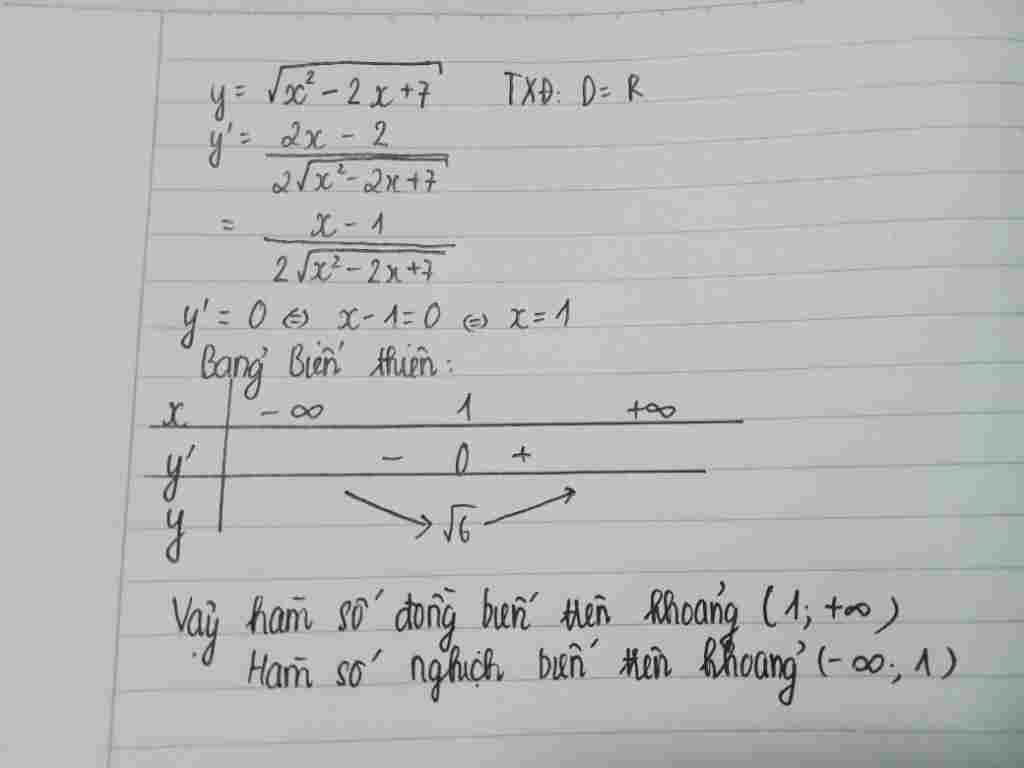 y = √(x² - 2x + 7) TXĐ: D = R
y' = (2x - 2) / (2√(x² - 2x + 7))
= (x - 1) / (2√(x² - 2x + 7))
y' = 0 ⇔ x - 1 = 0 ⇔ x = 1
Bảng Biến thiên:
x -∞ 1 +∞
y' - 0 +
y ↘ √6 ↗
Vậy hàm số đồng biến trên khoảng (1; +∞)
Hàm số nghịch biến trên khoảng (-∞; 1)